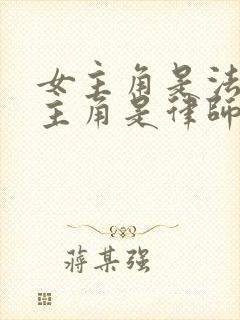 女主角是法
主角是律師
蔣某强